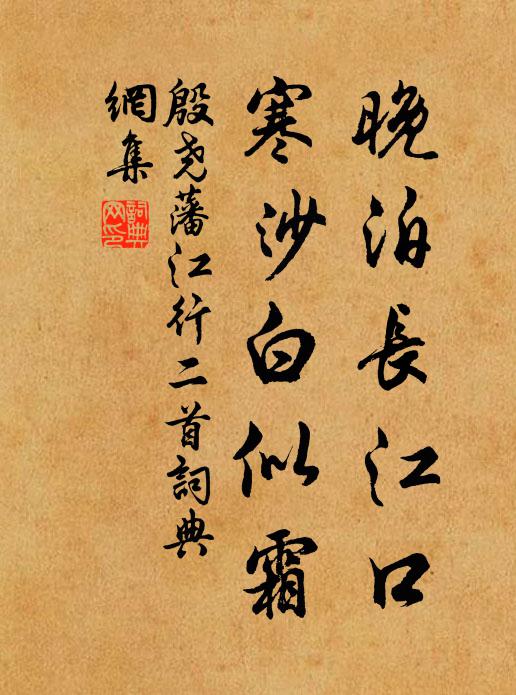 晚泊長江口
寒沙白似霜
殷尧藩江行二首詞典
網集
詞典
网印